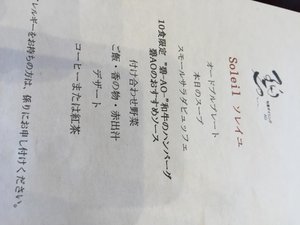 Soleil ソレイユ
オードブルプレート
本日のスープ
スモールサラダビュッフェ
10食限定 "碧-AO-"和牛のハンバーグ
碧AOのおすすめソース
付け合わせ野菜
ご飯・香の物・赤出汁
デザート
コーヒーまたは紅茶
レルギーをお持ちの方は、係りにお申し付けください。